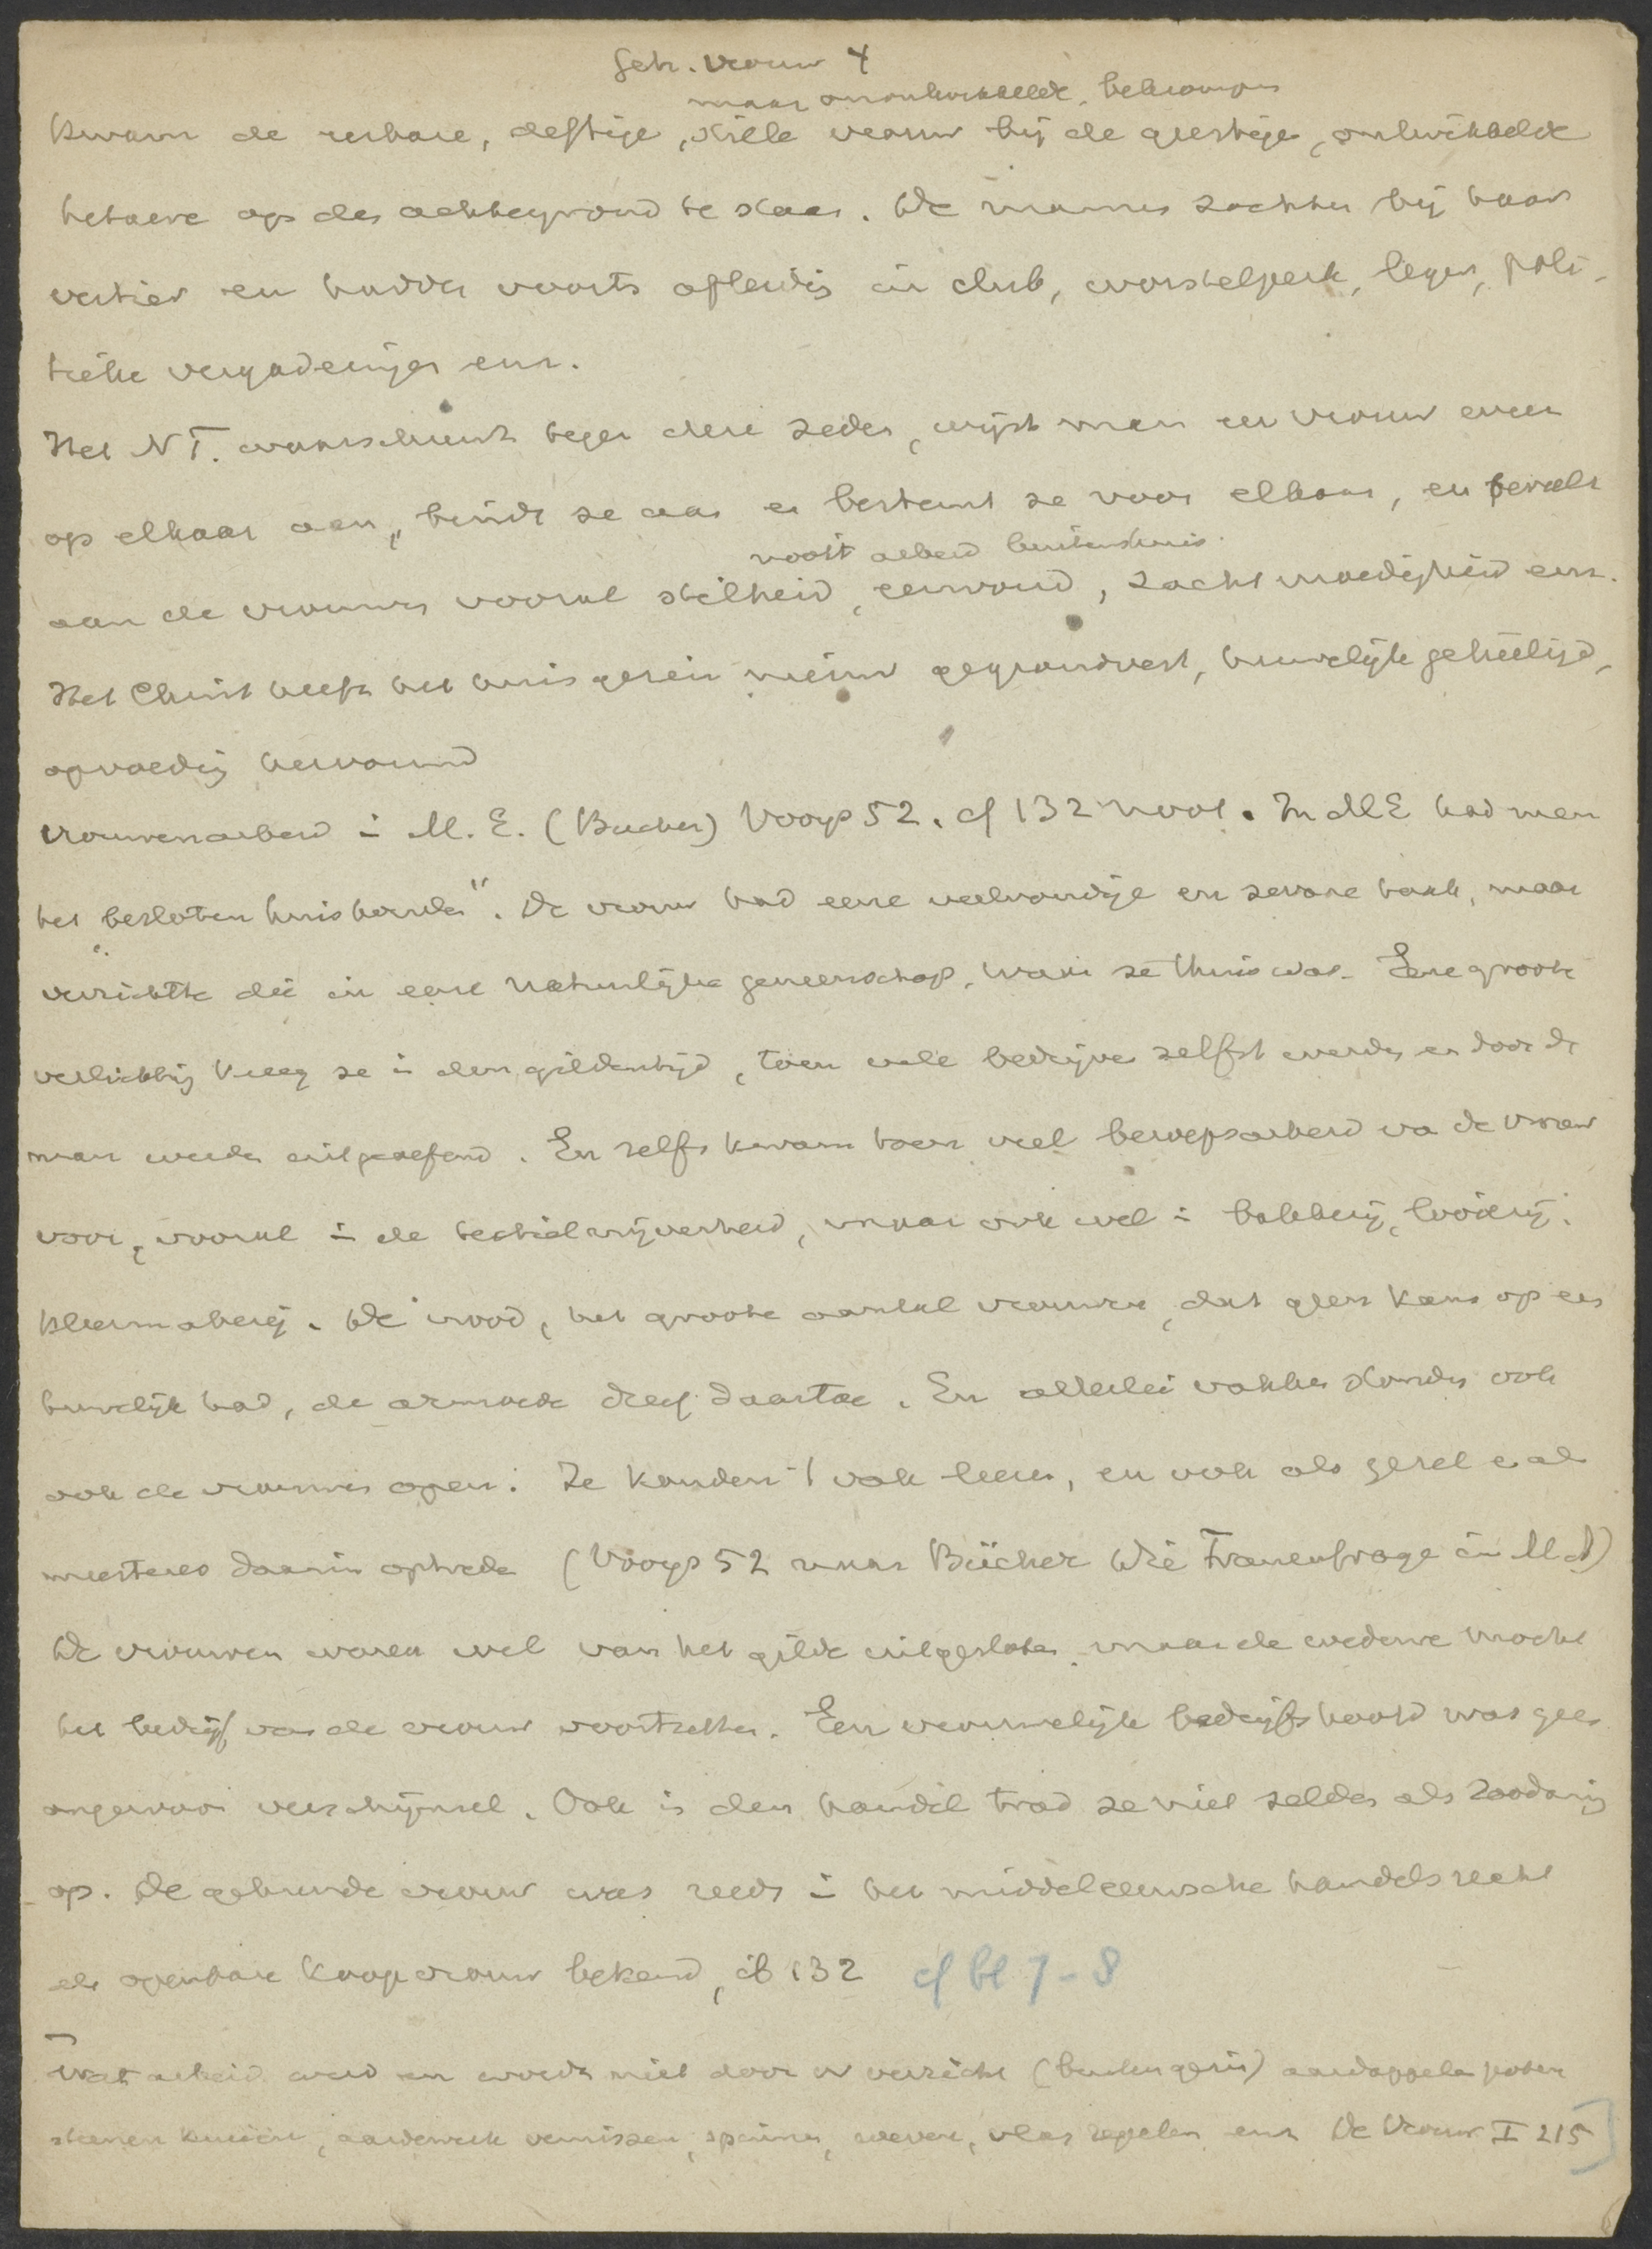 Geh. vrouw 4
maar onontwikkelde, bekrompen
kwam de eerbare, deftige, stille vrouw bij de geestige, ontwikkelde
hetaere op den achtergrond te staan. De mannen zochten bij haar
vertier en hadden voorts afleiding in club, worstelperk, leger, poli-
tieke vergaderingen enz.
Het N T. waarschuwt tegen deze zeden, wijst man en vrouw weer
op elkaar aan, bindt ze aan en bestemt ze voor elkaar, en beveelt
nooit arbeid buitenshuis.
aan de vrouwen vooral stilheid, eenvoud, zachtmoedigheid enz.
Het Christ heeft het huisgezin nieuw gegrondvest, huwelijk geheiligd,
opvoeding hervormd
Vrouwenarbeid in M. E. (Bucher) Vooys 52. cf 132 noot. In ME had men
het "besloten huishouden". De vrouw had eene veelvoudige en zware taak, maar
verrichtte die in eene natuurlijke gemeenschap, waar ze thuis was. Eene groote
verlichting kreeg ze in den gildentijd, toen vele bedrijven zelfst werden en door de
man werden uitgeoefend. En zelfs kwam toen veel beroepsarbeid va de vrouw
voor, vooral in de textielnijverheid, maar ook wel in bakkerij, looierij,
kleermakerij. De nood, het groote aantal vrouwen, dat geen kans op een
huwelijk had, de armoede dreef daartoe. En allerlei vakken stonden ook
ook de vrouwen open. Ze konden 't vak leeren, en ook als gezel en als
meesteres daarin optreden (Vooys 52 naar Bücher Die Frauenfrage in M A)
De vrouwen waren wel van het gilde uitgesloten, maar de weduwe mocht
het bedrijf van de vrouw voortzetten. Een vrouwelijk bedrijfshoofd was geen
ongewoon verschijnsel. Ook in den handel trad ze niet zelden als zoodanig
op. De gehuwde vrouw was reeds in het middeleeuwsche handelsrecht
als openbare koopvrouw bekend, ib 132 cf bl 7-8
Wat arbeid werd en wordt niet door vr verricht (buitengezin) aardappelen poten
steenen kruien, aardewerk vernissen, spinnen, weven, vlas repelen enz De Vrouw I 215]